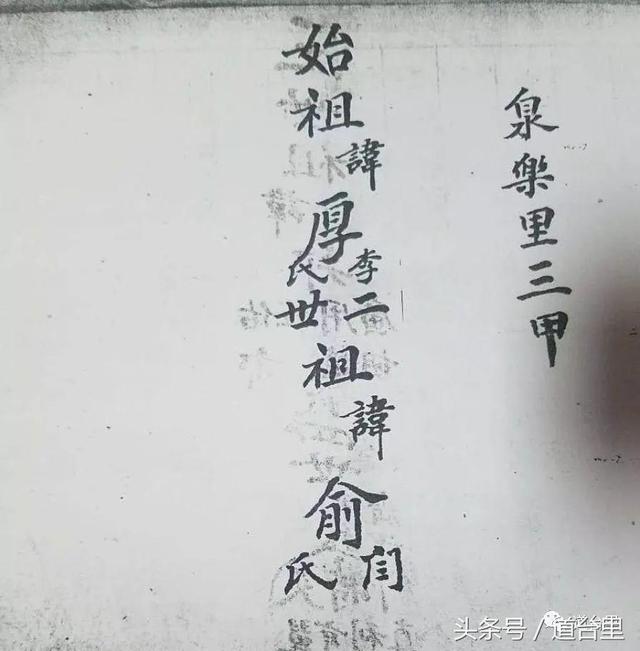 泉樂里三甲
始祖諱厚李氏二世祖諱俞闫氏
头条号 / 道台里